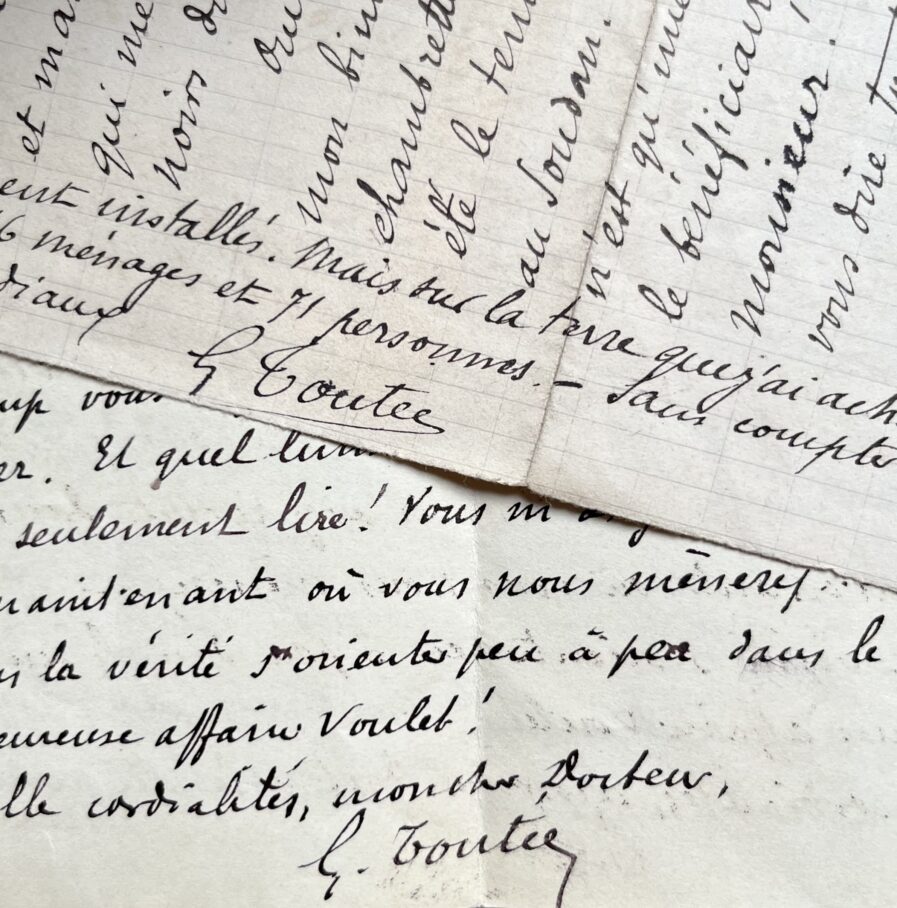 et ma
qui me
noirs d
mon bin
chambrette
été le tem
au Soudan.
n'est qu'une
le bénéficiair
monsieur !
vous dire
ent installés. Mais sur la terre que j'ai ach
6 ménages et 71 personnes. – Sans compter
diaux
G Toutée
up vous
er. Et quel
seulement lire ! Vous m'
maintenant où vous nous mènerez..
la vérité s'oriente peu à peu dans le
eureuse affaire Voulet !
lle cordialités, mon cher Docteur,
G. Toutée